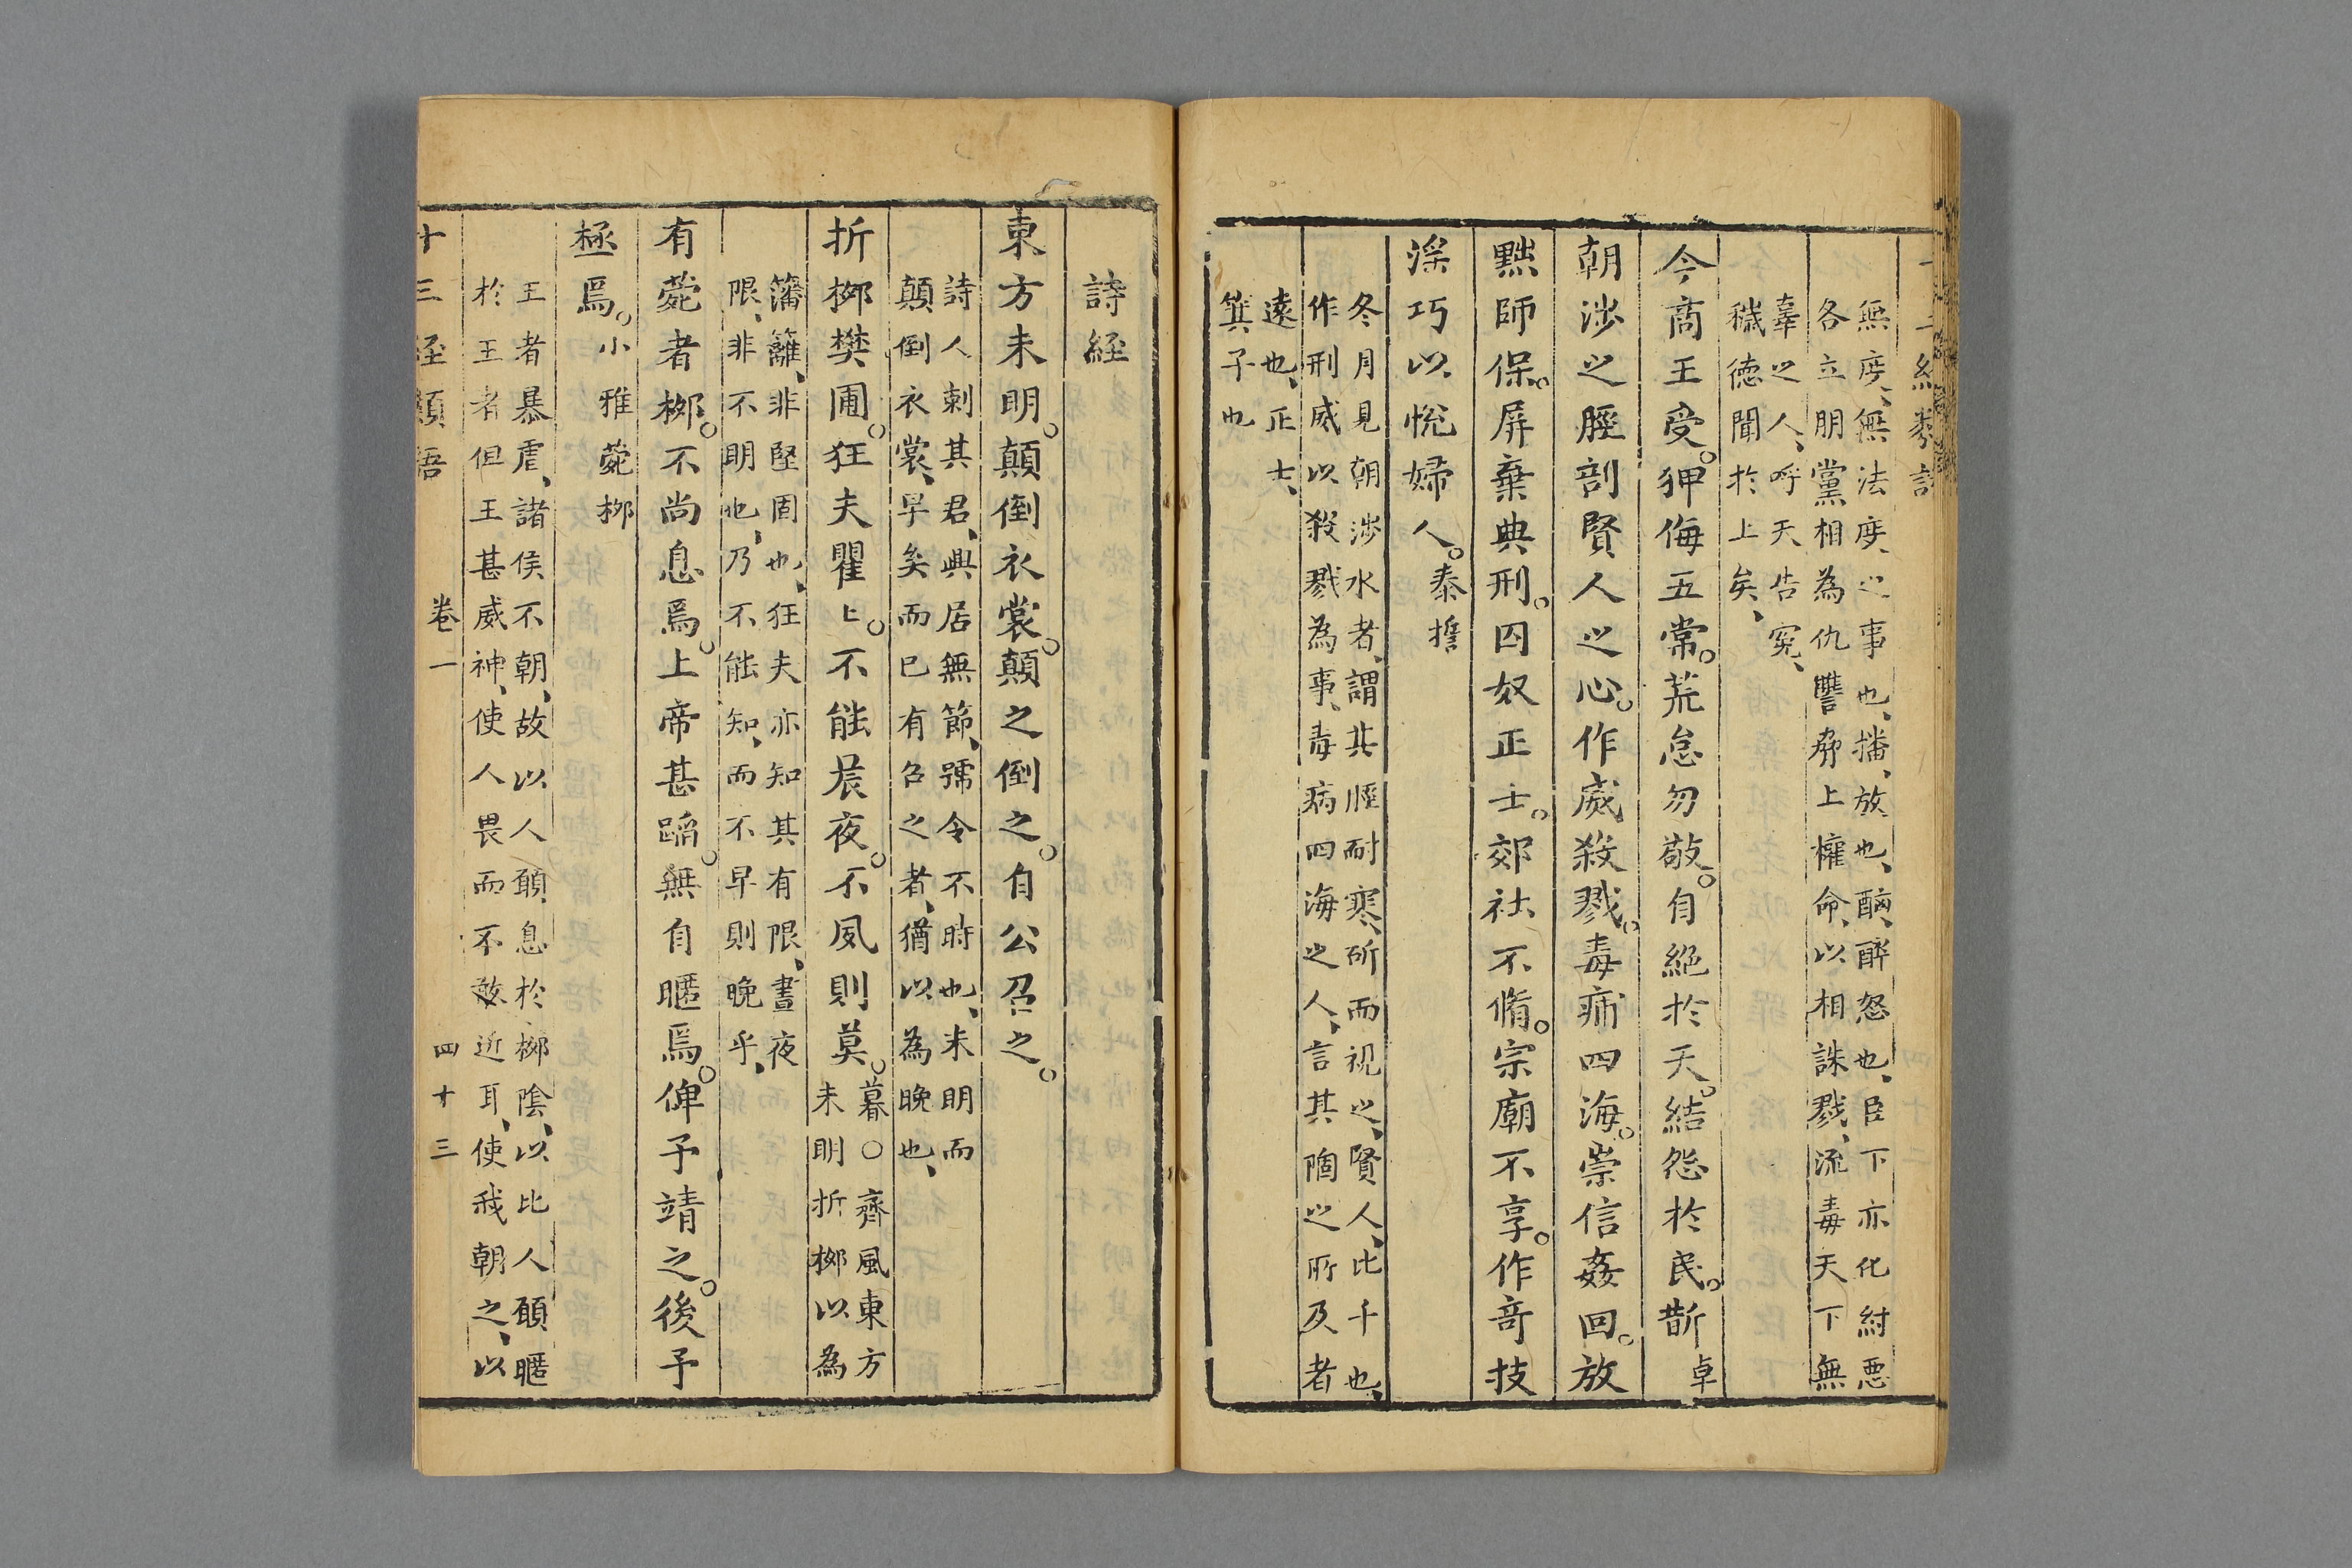 無度、無法度之事也、播、放也、酗、醉怒也、臣下亦化紂惡
各立朋黨相為仇讐脅上權命、以相誅戮、流毒天下無
辜之人、呼天告寃、
穢德聞於上矣、
今商王受。狎侮五常。荒怠勿敬。自絕於天。結怨於民。斮卓
朝涉之脛剖賢人之心。作威殺戮。毒痡四海。崇信姦回。放
黜師保。屏棄典刑。囚奴正士。郊社不脩。宗廟不享。作竒技
淫巧以悅婦人。泰誓
冬月見朝涉水者、謂其脛耐寒、斫而視之、賢人、比干也、
作刑威以殺戮為事、毒病四海之人、言其痡之所及者
遠也、正士、
箕子也
詩經
東方未明。顛倒衣裳。顛之倒之。自公召之。
詩人刺其君、興居無節、號令不時也、未明而
顛倒衣裳、早矣而已有召之者、猶以為晚也、
折栁樊圃。狂夫瞿〻。不能晨夜。不夙則莫。暮○齊風東方
未明折栁以為
藩籬、非堅固也、狂夫亦知其有限、晝夜
限、非不明也、乃不能知、而不早則晚乎、
有菀者栁。不尚息焉。上帝甚蹈。無自暱焉。俾予靖之。後予
極焉。小雅菀栁
王者暴虐、諸侯不朝、故以人願息於栁陰、以比人願暱
於王者但王甚威神、使人畏而不敢近耳、使我朝之、以
十三經類語 卷一 四十三